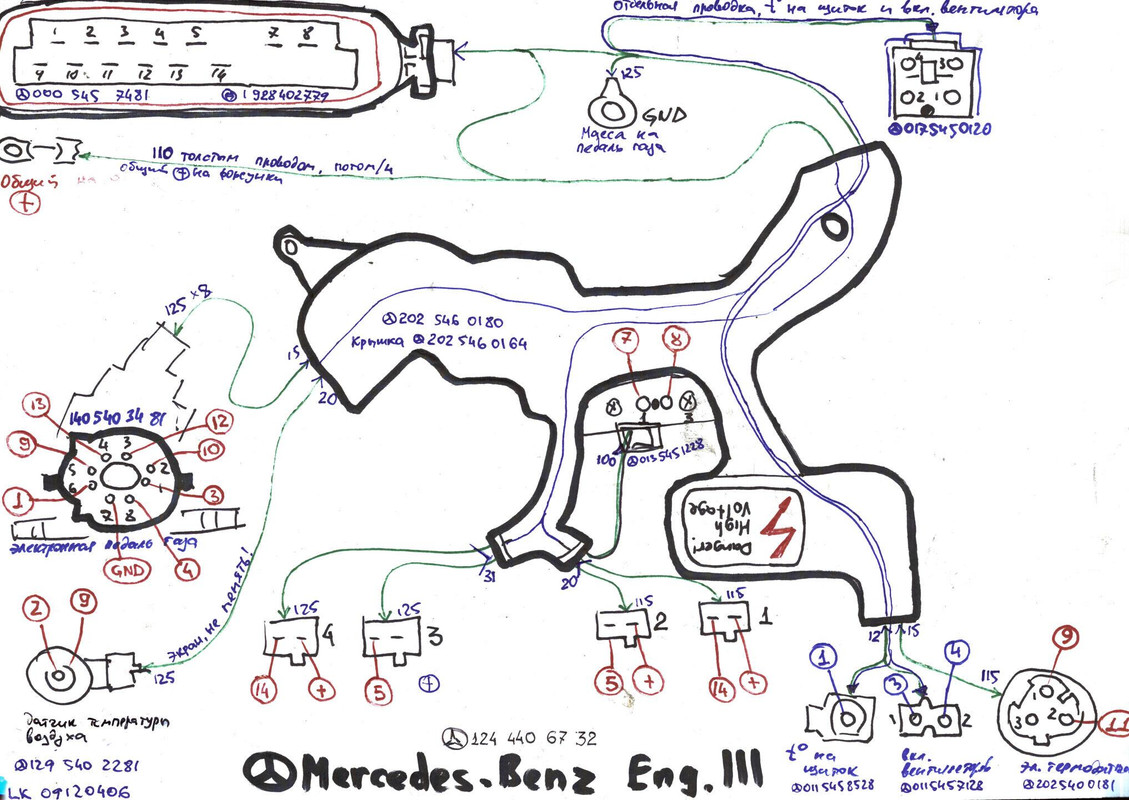 отдельная проводка, t° на щиток и вкл. вентилятора
1 2 3 4 5 7 8
9 10 11 12 13 14
000 545 7481
1928402779
125
GND
Масса на
педаль газа
4 3
2 1
0175450120
110 толстым проводом, потом/4
общий + на форсунки
Общий
+
125 x8
15
20
202 546 0180
Крышка 202 546 0164
7 8
1 3
100
013 545 1228
140 540 34 81
13 12
9 10
1 3
4 3
5 2
6 1
7 8
GND 4
электронная педаль газа
Danger!
High
Voltage
экран, не менять!
31
20
12 15
2 9
125
Датчик температуры
воздуха
129 540 2281
LK 09120406
125
4
14 +
125
3
5 +
115
2
5 +
115
1
14 +
1
3
4
1 2
115
9
1
3 2
11
t° на
щиток
0115458528
вкл.
вентилятора
0115457128
202540 0181
124 440 67 32
Mercedes-Benz Eng. III